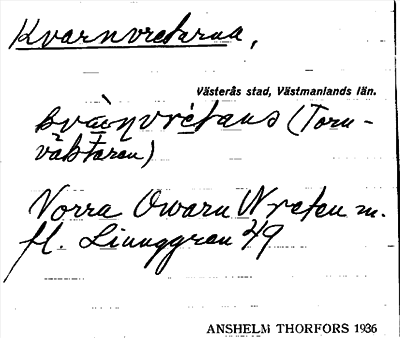 Kvarnvretarna,
Västerås stad, Västmanlands län.
(Torn-
väktaren)
Norra Qwarn Wreten m.
fl. Liunggren 49
ANSHELM THORFORS 1936